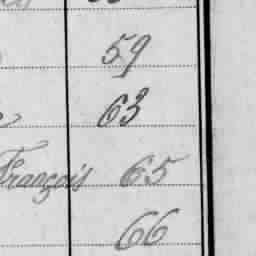 59
63
François 65
66